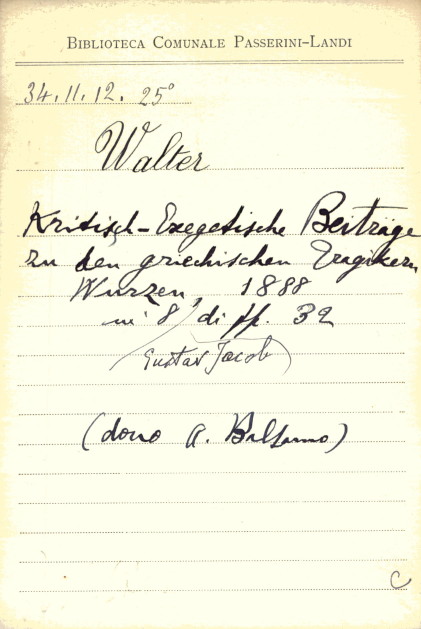 BIBLIOTECA COMUNALE PASSERINI-LANDI
34.11.12. 25°
Walter
Kritisch-Exegetische Beiträge
zu den griechischen Tragikern
Wurzen 1888
in 8° di pp. 32
(Gustav Jacob)
(dono A. Balsamo)
C